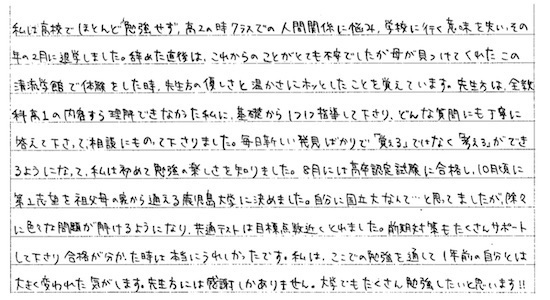 私は高校でほとんど勉強せず、高2の時クラスでの人間関係に悩み、学校に行く意味を失い、その
年の2月に退学しました。辞めた直後は、これからのことがとても不安でしたが母が見つけてくれたこの
清流学館で体験をした時、先生方の優しさと温かさにホッとしたことを覚えています。先生方は、全教
科高1の内容すら理解できなかった私に、基礎から1つ1つ指導して下さり、どんな質問にも丁寧に
答えて下さって、相談にものって下さりました。毎日新しい発見ばかりで「覚える」ではなく「考える」ができ
るようになって、私は初めて勉強の楽しさを知りました。8月には高卒認定試験に合格し、10月頃に
第1志望を祖父母の家から通える鹿児島大学に決めました。自分に国立大なんて…と思ってましたが、徐々
に色々な問題が解けるようになり、共通テストは目標点数近くとれました。前期対策もたくさんサポート
して下さり合格が分かった時は本当にうれしかったです。私は、ここでの勉強を通して1年前の自分とは
大きく変われた気がします。先生方には感謝しかありません。大学でもたくさん勉強したいと思います!!